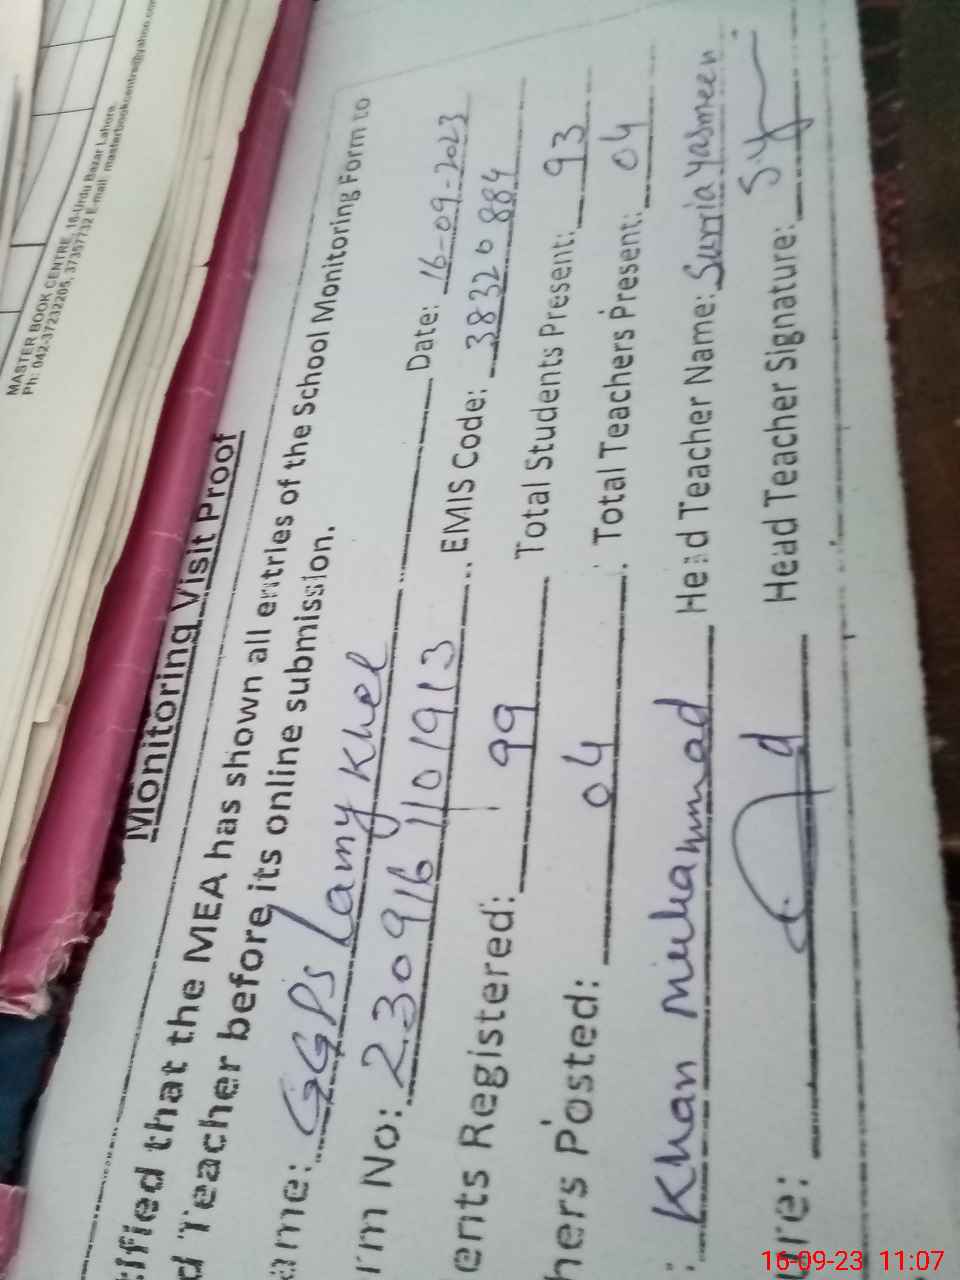 MASTER BOOK CENTRE, 16-Urdu Bazar Lahore.
Ph: 042-37232205, 37357732 E-mail: masterbookcentre@yahoo.com
Monitoring Visit Proof
tified that the MEA has shown all entries of the School Monitoring Form to
d Teacher before its online submission.
ame: GGPS Lamy Khel Date: 16-09-2023
rm No: 2309161101913 EMIS Code: 38320884
ents Registered: 99 Total Students Present: 93
hers Posted: 04 Total Teachers Present: 04
: Khan Muhammad Head Teacher Name: Surria Yasmeen
ure: Head Teacher Signature: S.y
16-09-23 11:07